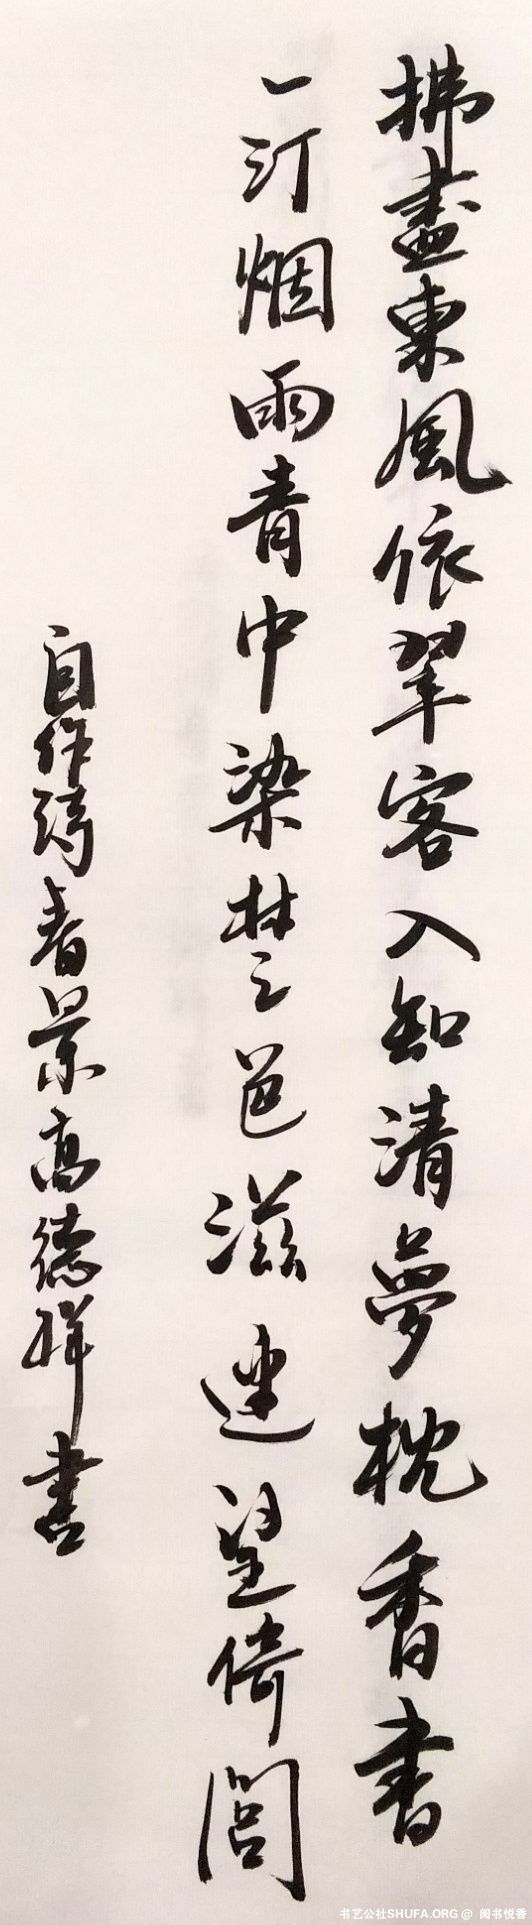 拂盡東風依翠客入知清夢枕香書
一汀烟雨青中染楚色滋迷望倚閭
自作詩春景高德祥書
书艺公社SHUFA.ORG @ 阅书悦香